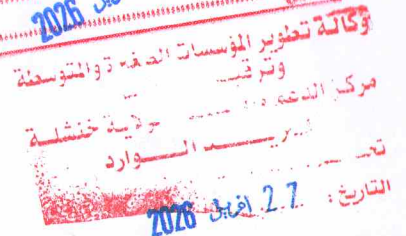 2026
وكالة تطوير المؤسسات الصغيرة والمتوسطة
وترقيـ
مركز الدعم ولاية خنشلة
بريـــد الـــوارد
تحـ
التاريخ: 27 افريل 2026